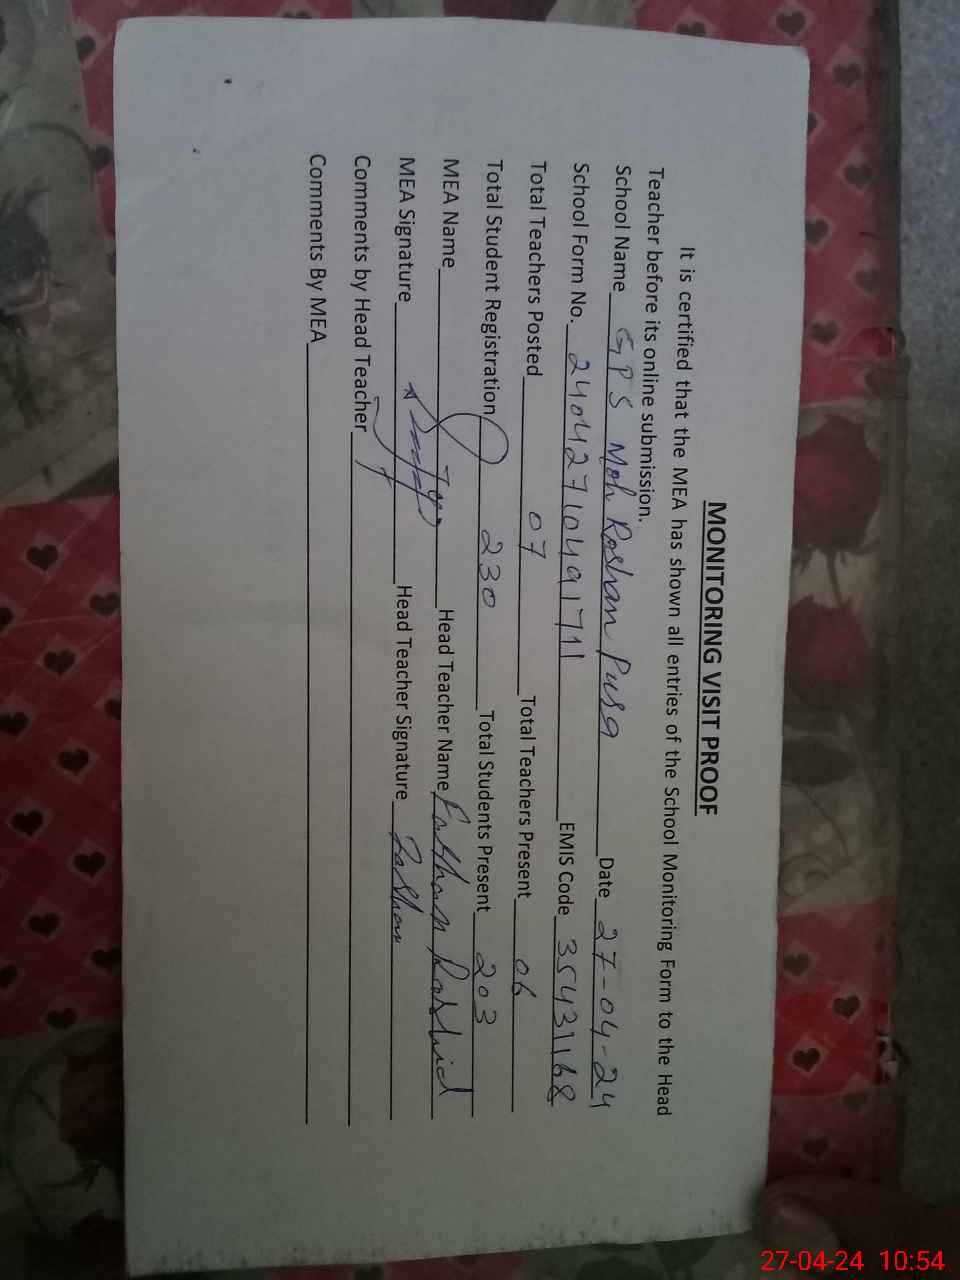 MONITORING VISIT PROOF
It is certified that the MEA has shown all entries of the School Monitoring Form to the Head
Teacher before its online submission.
School Name GPS Moh Roshan Pura Date 27-04-24
School Form No. 24042710491711 EMIS Code 35431168
Total Teachers Posted 07 Total Teachers Present 06
Total Student Registration 230 Total Students Present 203
MEA Name Head Teacher Name Rashid
MEA Signature Head Teacher Signature
Comments by Head Teacher
Comments By MEA
27-04-24 10:54